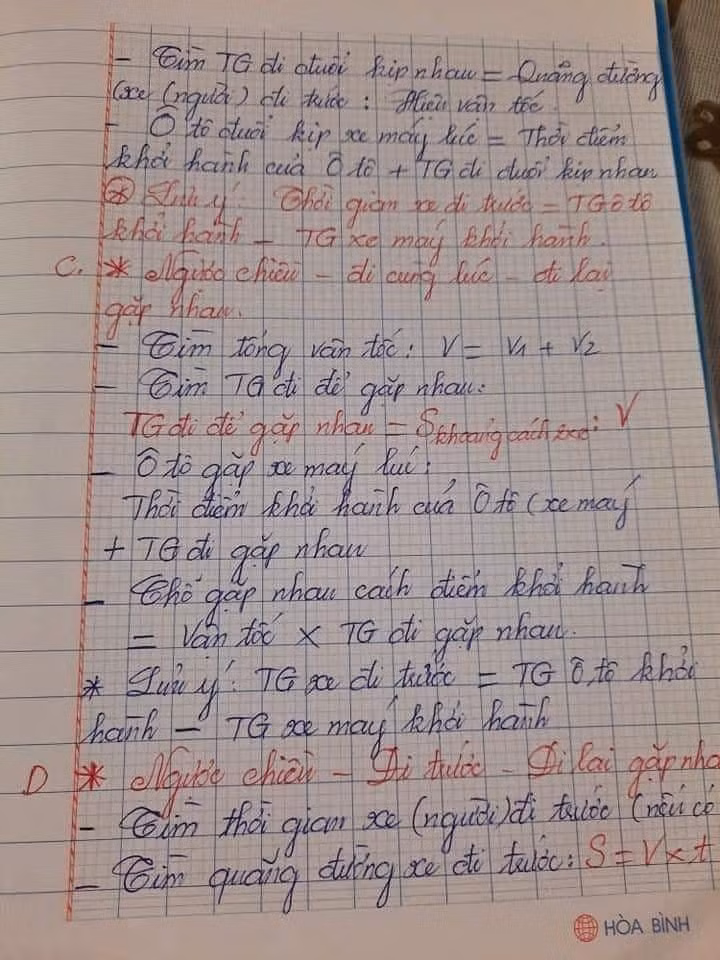 - Tìm TG đi đuổi kịp nhau = Quãng đường
(xe (người) đi trước : Hiệu vận tốc
- Ô tô đuổi kịp xe máy lúc = Thời điểm
khởi hành của Ô tô + TG đi đuổi kịp nhau
* Lưu ý: Thời gian xe đi trước = TG ô tô
khởi hành - TG xe máy khởi hành.
C. * Ngược chiều - đi cùng lúc - đi lại
gặp nhau.
- Tìm tổng vận tốc: V = V1 + V2
- Tìm TG đi để gặp nhau:
TG đi để gặp nhau = S khoảng cách 2 xe : V
- Ô tô gặp xe máy lúc:
Thời điểm khởi hành của Ô tô (xe máy
+ TG đi gặp nhau
- Chỗ gặp nhau cách điểm khởi hành
= Vận tốc × TG đi gặp nhau.
* Lưu ý: TG xe đi trước = TG Ô tô khởi
hành - TG xe máy khởi hành
D * Ngược chiều - Đi trước - Đi lại gặp nha
- Tìm thời gian xe (người) đi trước (nếu có
- Tìm quãng đường xe đi trước: S = V × t
HÒA BÌNH